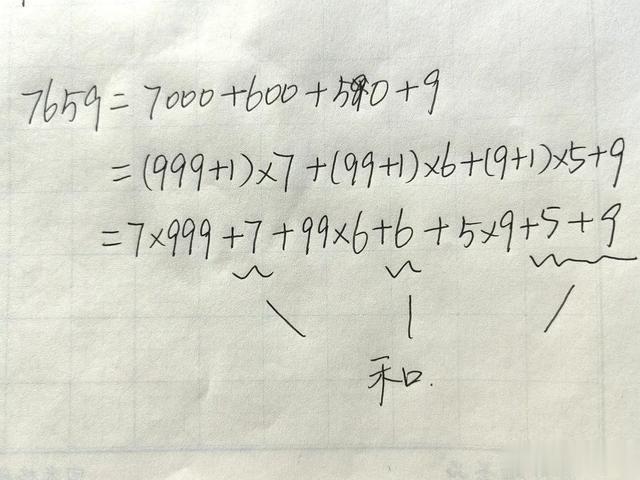 7659=7000+600+50+9
=(999+1)×7+(99+1)×6+(9+1)×5+9
=7×999+7+99×6+6+5×9+5+9
和.